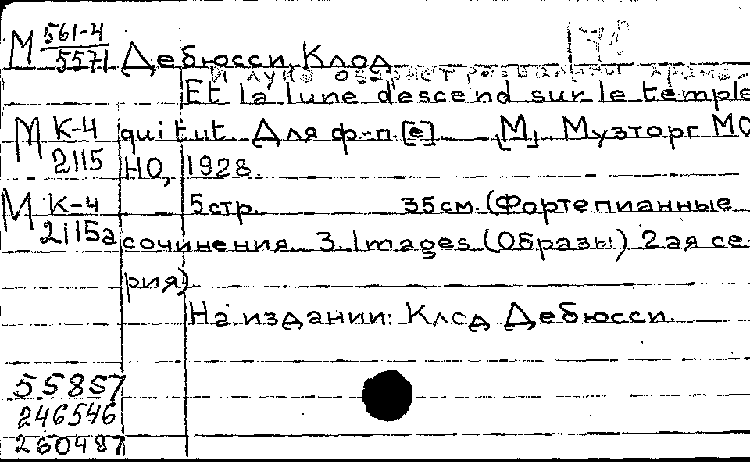 М 561-4/5571 Дебюсси, Клод
И луна
Et la lune descend sur le temple
М К-4/2115 qui fut. Для ф-п. [М], Музторг МО
НО, 1928.
М К-4/2115а 5 стр. 35 см. (Фортепианные
сочинения. 3. Images (Образы) 2ая се
рия)
На издании: Клод Дебюсси.
55857
246546
260487